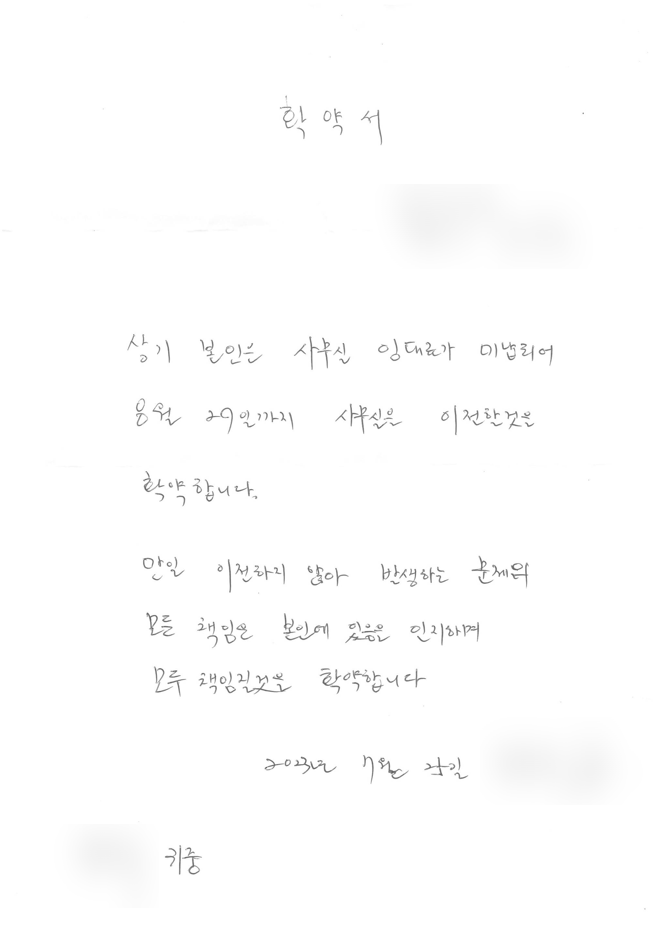 확약서
상기 본인은 사무실 임대료가 미납되어
용월 29일까지 사무실은 이전할것을
확약합니다.
만일 이전하지 않아 발생하는 문제의
모든 책임은 본인에 있음을 인지하며
모두 책임질것을 확약합니다
2023년 7월
귀중